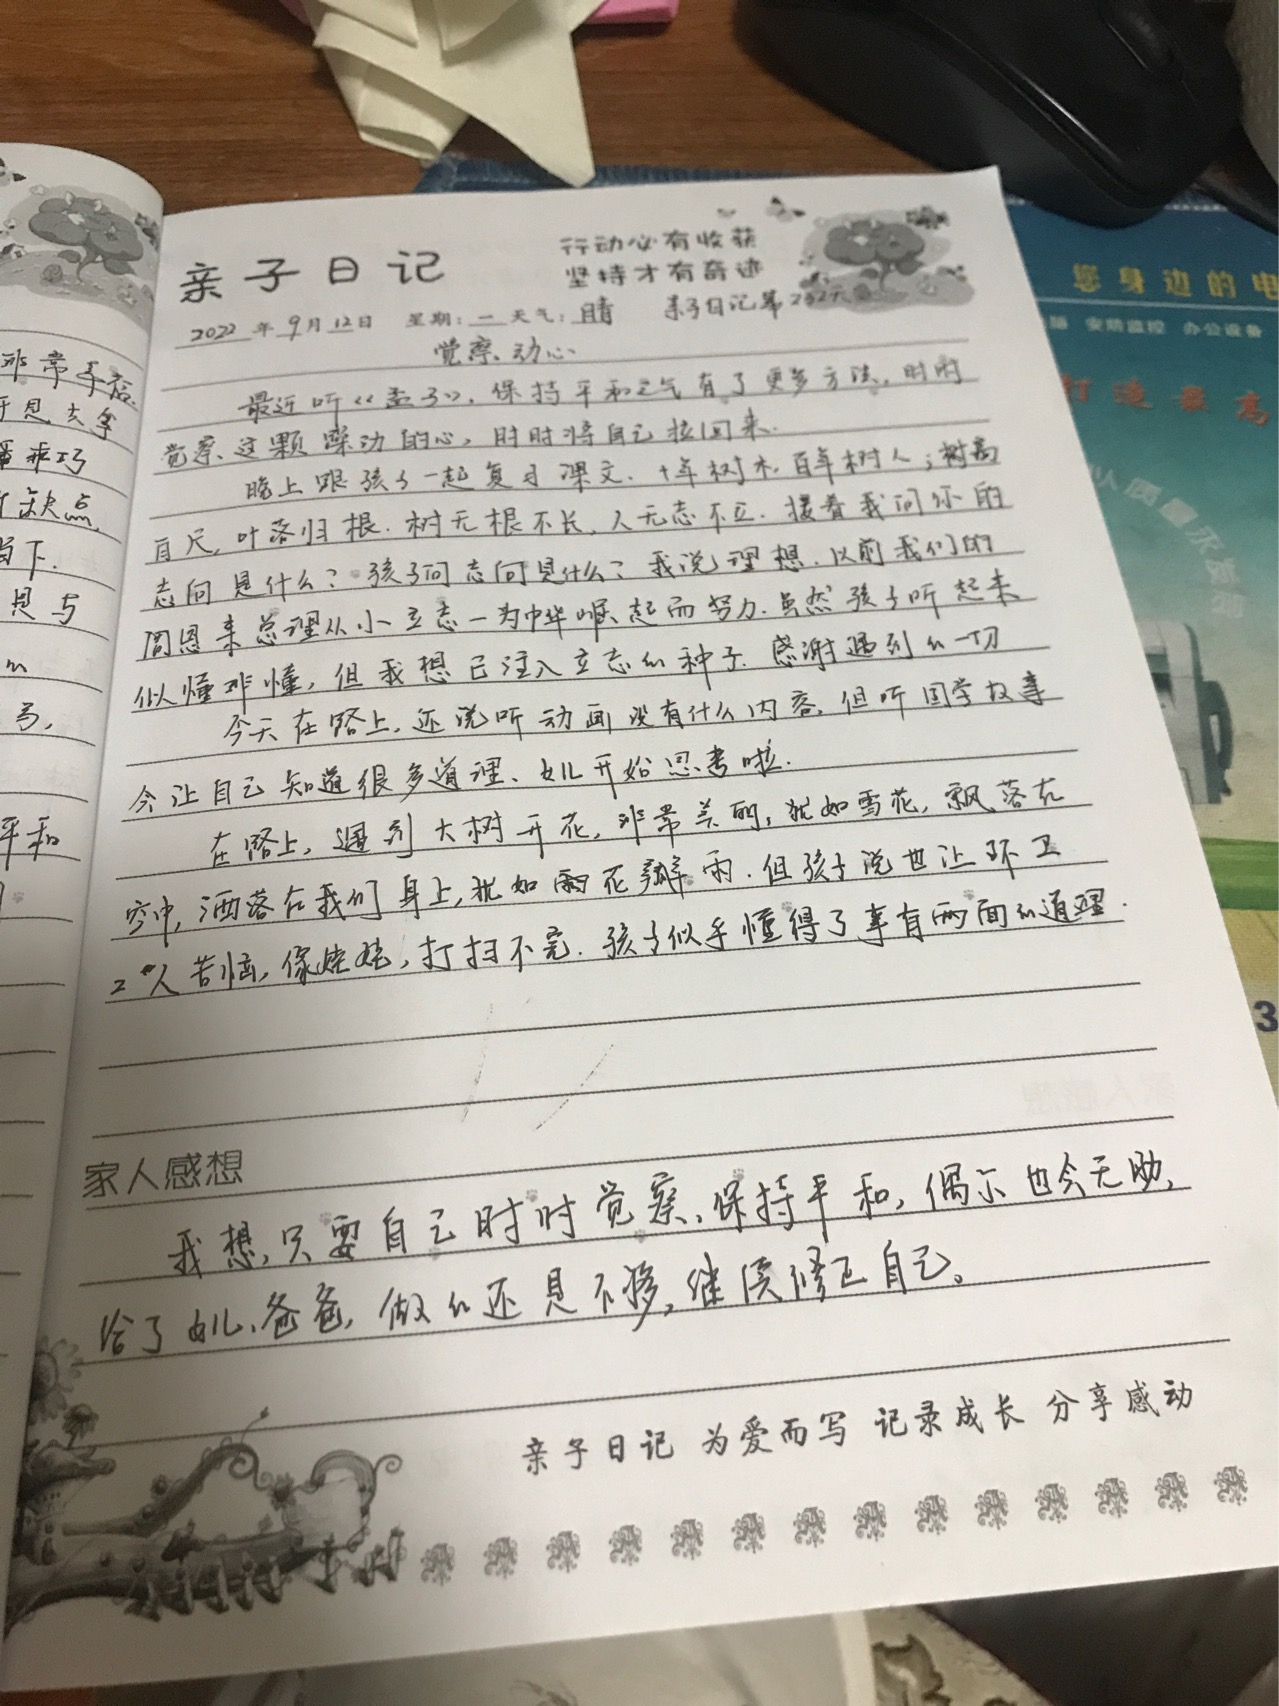 非常幸福.
开恩去学
乖巧
缺点,
当下.
恩与
平和
亲子日记
行动必有收获
坚持才有奇迹
2022年9月12日 星期:一 天气:晴 亲子日记第252天
觉察、动心
最近听《孟子》,保持平和之气有了更多方法,时时
觉察这颗躁动的心,时时将自己拉回来.
晚上跟孩子一起复习课文.十年树木,百年树人;树高
百尺,叶落归根.树无根不长,人无志不立.接着我问你的
志向是什么?孩子问志向是什么?我说理想.以前我们的
周恩来总理从小立志一为中华崛起而努力.虽然孩子听起来
似懂非懂,但我想已注入立志的种子.感谢遇到的一切
今天在路上,还说听动画没有什么内容,但听国学故事
会让自己知道很多道理、女儿开始思考啦.
在路上,遇到大树开花,非常美丽,犹如雪花,飘落在
空中,洒落在我们身上,犹如花瓣雨.但孩子说也让环卫
工人苦恼,像姥姥,打扫不完.孩子似乎懂得了事有两面的道理.
家人感想
我想,只要自己时时觉察,保持平和,偶尔也会无助,
给了女儿、爸爸,做的还是不够,继续修正自己。
亲子日记 为爱而写 记录成长 分享感动
您身边的电
安防监控 办公设备
打造最高
以质量求发展
3